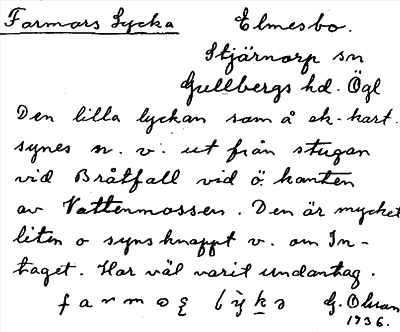 Farmors Lycka Elmesbo.
Stjärnorp sn
Gullbergs hd. Ögl
Den lilla lyckan som å ek. kart.
synes n. v. ut från stugan
vid Bråtfall vid ö. kanten
av Vattenmossen. Den är mycket
liten o syns knappt v. om In-
taget. Har väl varit undantag.
farmoς lỳkə G. Olson
1936.